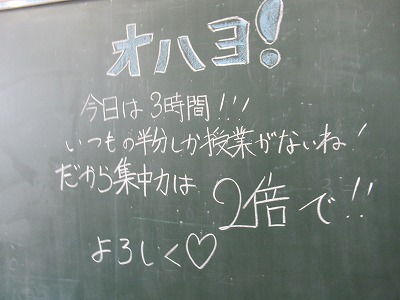 オハヨ!
今日は3時間!!!
いつもの半分しか授業がないね!
だから集中力は
2倍で!!
よろしく♡